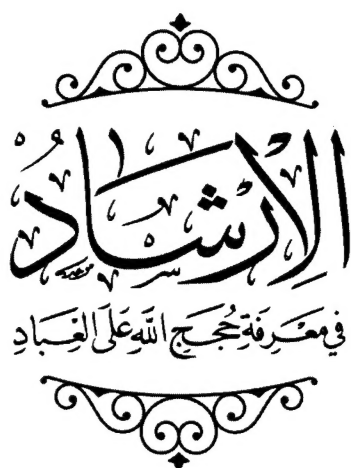 الْإِرْشَادُ
فِي مَعْرِفَةِ حُجَجِ اللَّهِ عَلَى الْعِبَادِ